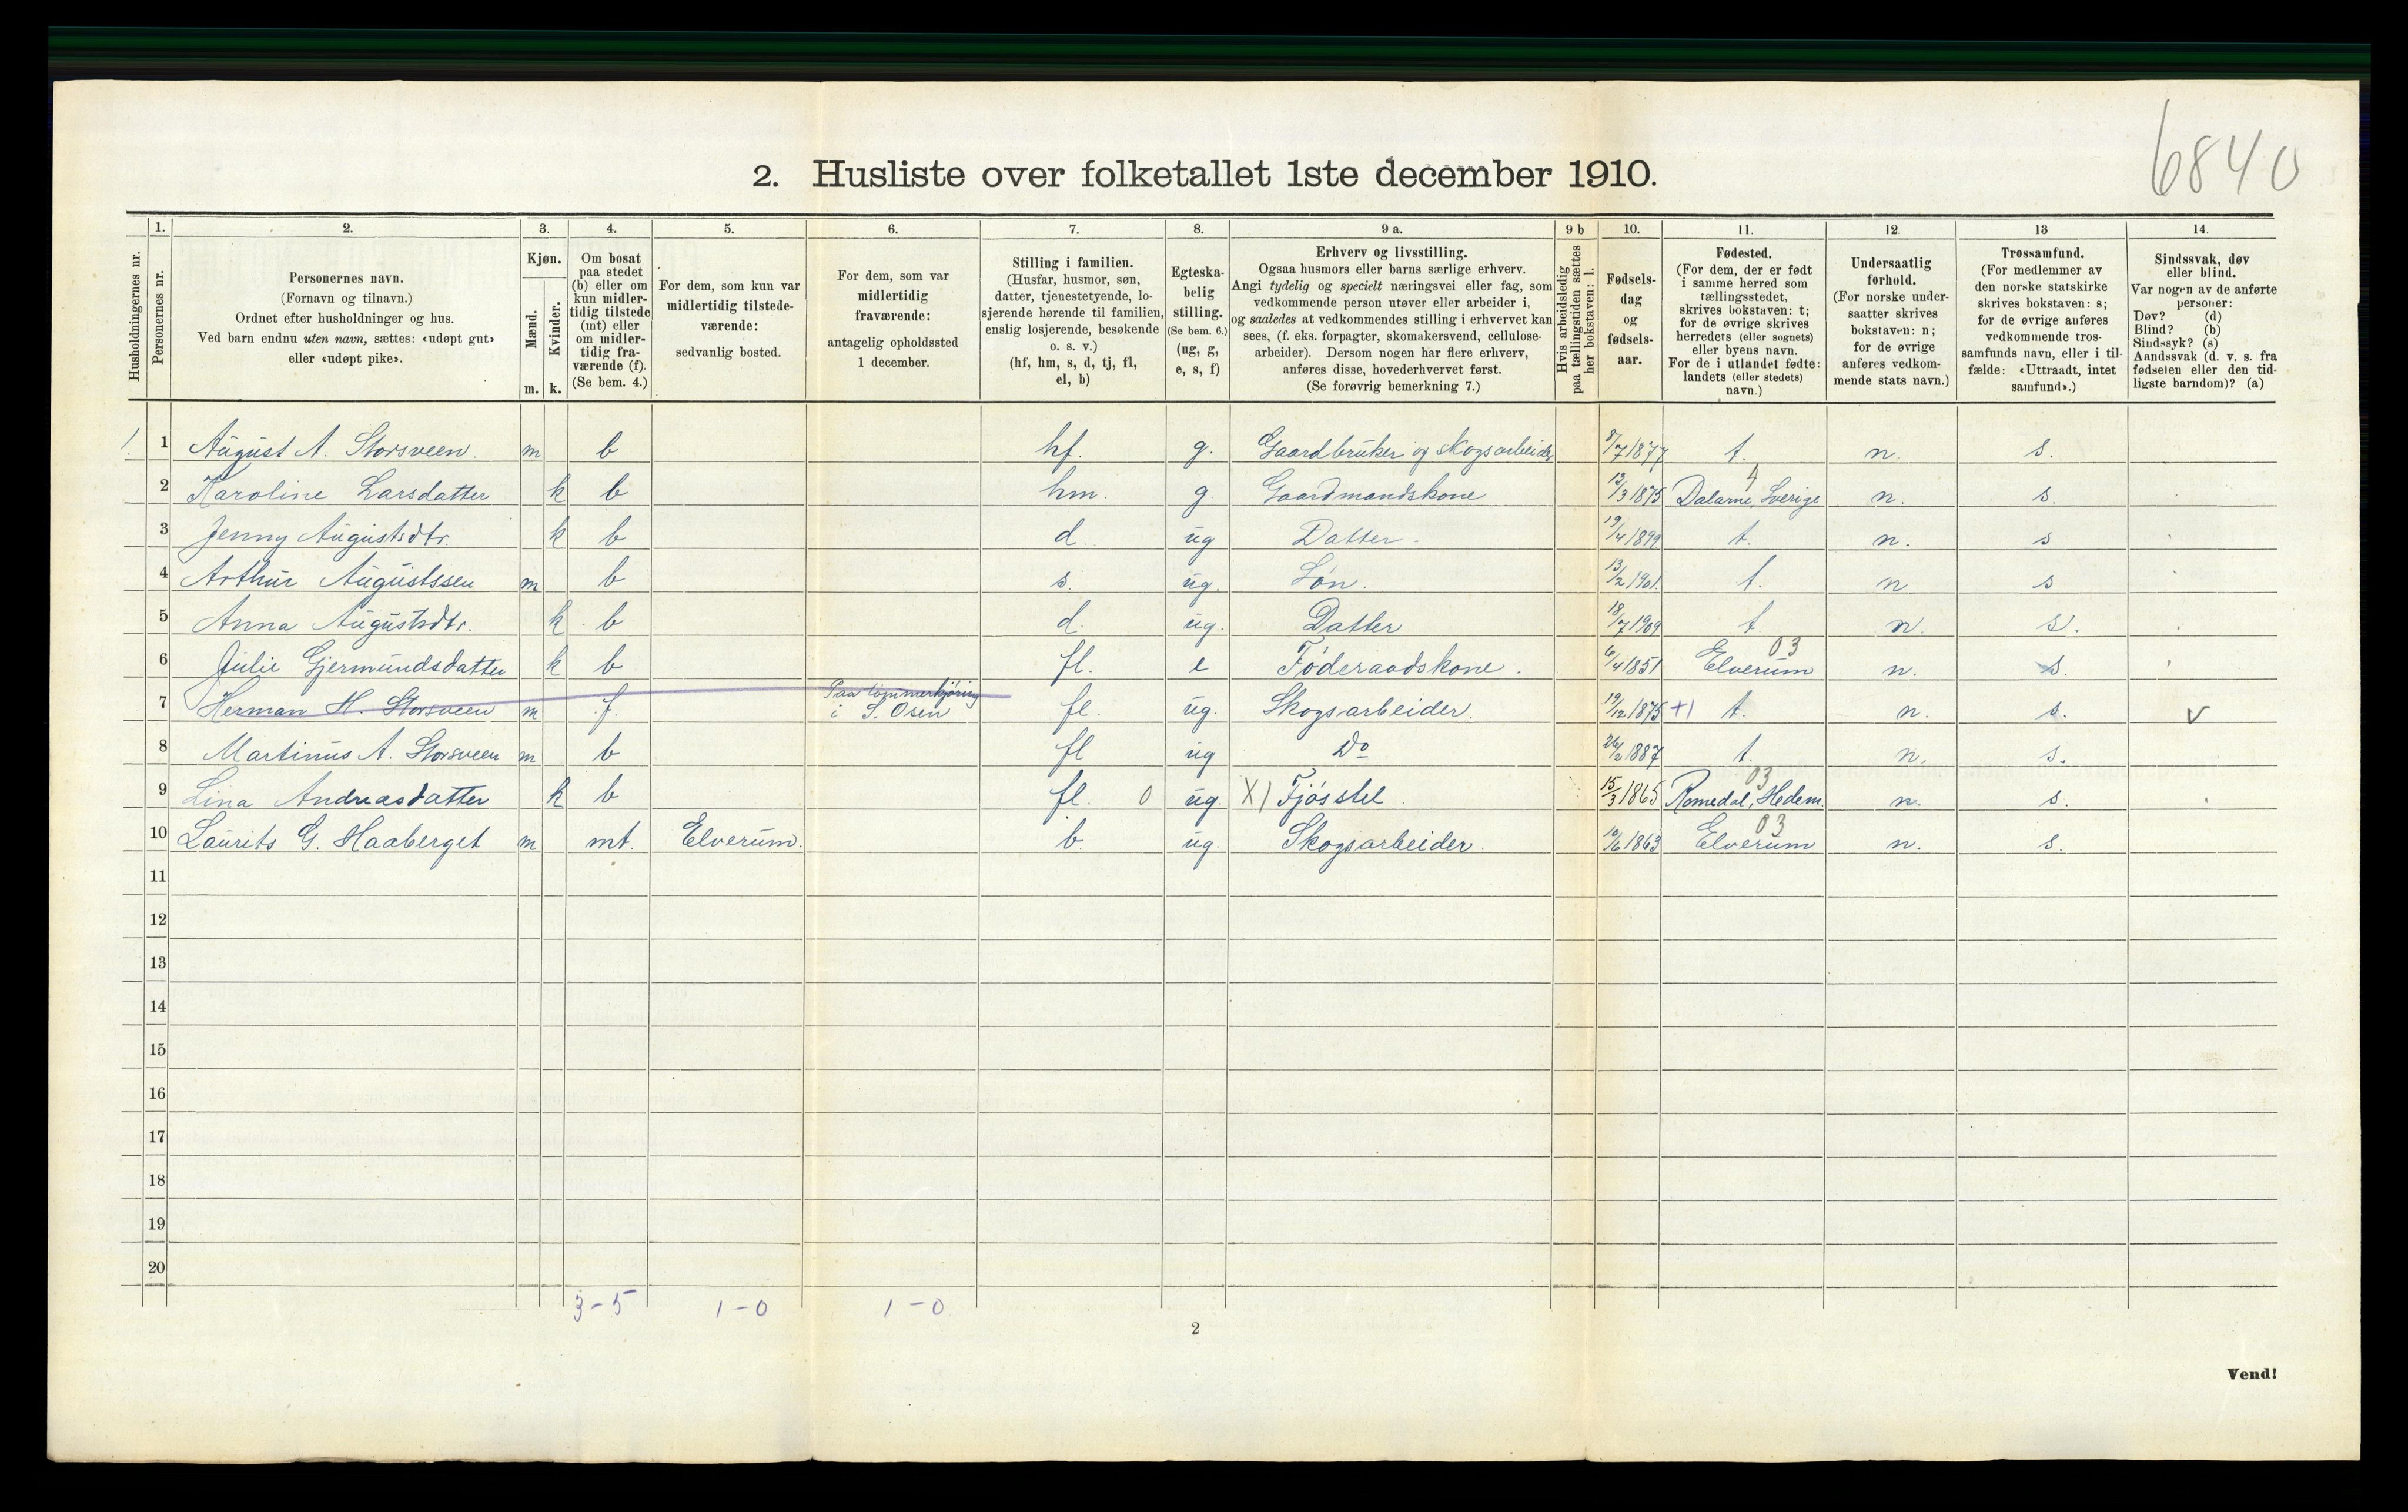 6840
2. Husliste over folketallet 1ste december 1910.
Husholdningernes nr.
1.
Personernes nr.
2.
Personernes navn.
(Fornavn og tilnavn.)
Ordnet efter husholdninger og hus.
Ved barn endnu uten navn, sættes: «udøpt gut»
eller «udøpt pike».
3.
Kjøn.
Mænd.
Kvinder.
m. k.
4.
Om bosat
paa stedet
(b) eller om
kun midler-
tidig tilstede
(mt) eller
om midler-
tidig fra-
værende (f).
(Se bem. 4.)
5.
For dem, som kun var
midlertidig tilstede-
værende:
sedvanlig bosted.
6.
For dem, som var
midlertidig
fraværende:
antagelig opholdssted
1 december.
7.
Stilling i familien.
(Husfar, husmor, søn,
datter, tjenestetyende, lo-
sjerende hørende til familien,
enslig losjerende, besøkende
o. s. v.)
(hf, hm, s, d, tj, fl,
el, b)
8.
Egteska-
belig
stilling.
(Se bem. 6.)
(ug, g,
e, s, f)
9 a.
Erhverv og livsstilling.
Ogsaa husmors eller barns særlige erhverv.
Angi tydelig og specielt næringsvei eller fag, som
vedkommende person utøver eller arbeider i,
og saaledes at vedkommendes stilling i erhvervet kan
sees, (f. eks. forpagter, skomakersvend, cellulose-
arbeider). Dersom nogen har flere erhverv,
anføres disse, hovederhvervet først.
(Se forøvrig bemerkning 7.)
9 b
Hvis arbeidsledig
paa tællingstiden sættes
her bokstaven: l.
10.
Fødsels-
dag
og
fødsels-
aar.
11.
Fødested.
(For dem, der er født
i samme herred som
tællingsstedet,
skrives bokstaven: t;
for de øvrige skrives
herredets (eller sognets)
eller byens navn.
For de i utlandet fødte:
landets (eller stedets)
navn.)
12.
Undersaatlig
forhold.
(For norske under-
saatter skrives
bokstaven: n;
for de øvrige
anføres vedkom-
mende stats navn.)
13
Trossamfund.
(For medlemmer av
den norske statskirke
skrives bokstaven: s;
for de øvrige anføres
vedkommende tros-
samfunds navn, eller i til-
fælde: «Uttraadt, intet
samfund».)
14.
Sindssvak, døv
eller blind.
Var nogen av de anførte
personer:
Døv? (d)
Blind? (b)
Sindssyk? (s)
Aandssvak (d. v. s. fra
fødselen eller den tid-
ligste barndom)? (a)
1. 1 August A. Storsveen. m b hf. g. Gaardbruker og skogsarbeider 8/7 1877 t. n. s.
4
2 Karoline Larsdatter k b hm. g. Gaardmandskone 12/3 1875 Dalarne, Sverige n. s.
3 Jenny Augustsdtr. k b d ug Datter. 19/4 1899 t. n. s
4 Arthur Augustssen m b s. ug. Søn. 13/2 1901. t. n s
5 Anna Augustsdtr. k b d. ug. Datter 18/7 1909 t n. s.
03
6 Julie Gjermundsdatter k b fl. e Føderaadskone. 6/4 1851 Elverum n. s.
Paa tømmerkjøring
7 Herman H. Storsveen m f. i S. Osen fl. ug. Skogsarbeider. 19/12 1875 +) t. n. s. v
8 Martinus A. Storsveen m b fl ug Do 26/2 1887 t. n. s.
03
9 Lina Andreasdatter k b fl. 0 ug. X) Fjøsstel 15/3 1865 Romedal, Hedem. n. s.
03
10 Laurits G. Haaberget m mt. Elverum. b. ug. Skogsarbeider. 10/6 1863 Elverum n. s.
11
12
13
14
15
16
17
18
19
20
3-5 1-0 1-0
2
Vend!